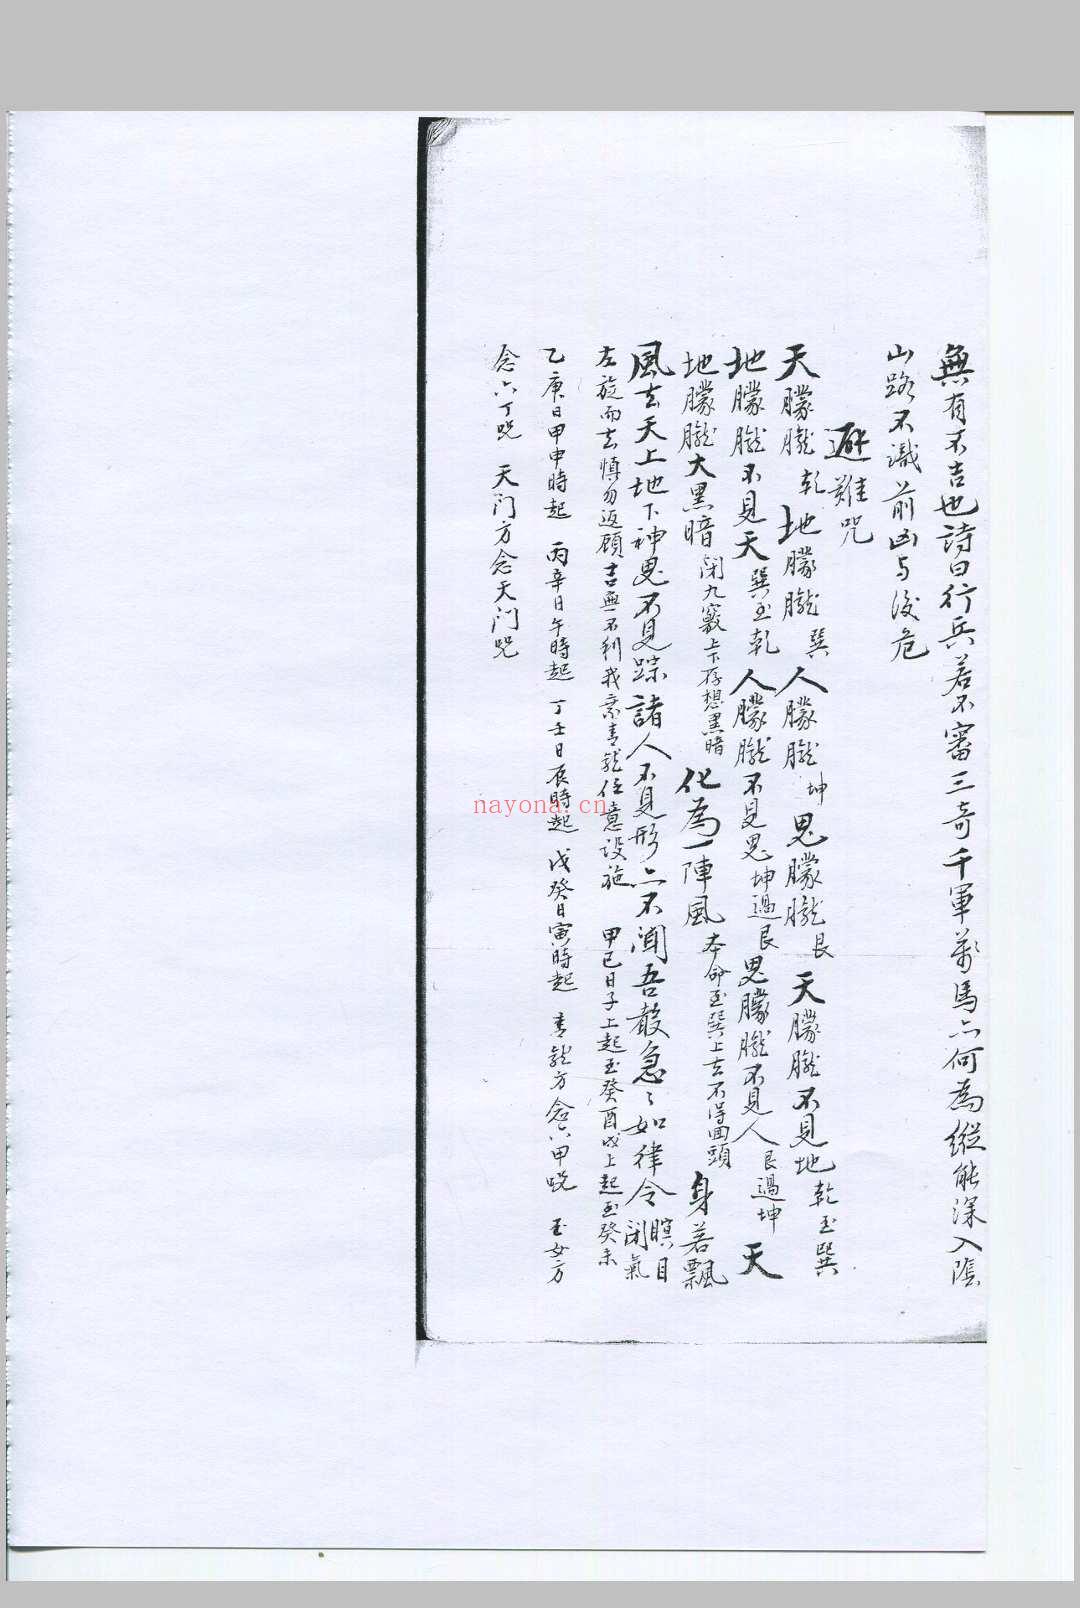 無有不吉也詩曰行兵若不審三奇千軍萬馬亦何為縱能深入陰
山路不識前凶与後危
避難咒
天朦朧乾地朦朧巽人朦朧坤鬼朦朧艮天朦朧不見地乾至巽
地朦朧不見天巽至乾人朦朧不見鬼坤過艮鬼朦朧不見人艮過坤天
地朦朧大黑暗閉九竅上下存想黑暗化為一陣風本命至巽上去不得回頭身若飄
風去天上地下神鬼不見踪諸人不見形亦不聞吾敎急〻如律令瞑目閉氣
左旋而去慎勿返顧吉無不利我乘青龍任意設施 甲己日子上起至癸酉戌上起至癸未
乙庚日甲申時起 丙辛日午時起 丁壬日辰時起 戊癸日寅時起 青龍方念六甲咒 玉女方
念六丁咒 天門方念天門咒
nayona.cn